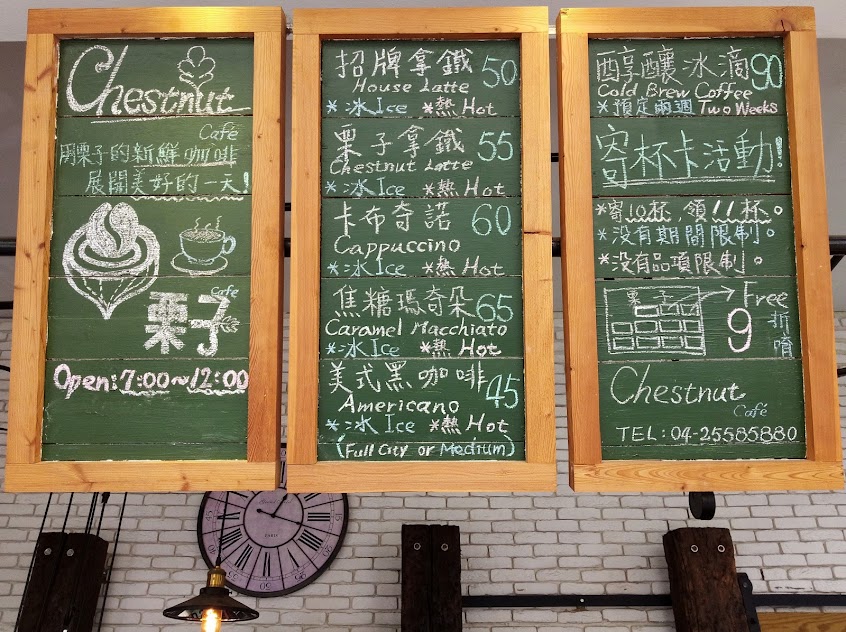 Chestnut
Café
用栗子的新鮮咖啡
展開美好的一天!
Cafe
栗子
Open:7:00~12:00
招牌拿鐵 50
House Latte
*冰Ice *熱Hot
栗子拿鐵 55
Chestnut Latte
*冰Ice *熱Hot
卡布奇諾 60
Cappuccino
*冰Ice *熱Hot
焦糖瑪奇朵 65
Caramel Macchiato
*冰Ice *熱Hot
美式黑咖啡 45
Americano
*冰Ice *熱Hot
(Full City or Medium)
醇釀冰滴 90
Cold Brew Coffee
*預定兩週 Two Weeks
寄杯卡活動!
*寄10杯,領11杯。
*没有期間限制。
*没有品項限制。
栗子 Free
9折唷
Chestnut
Café
TEL:04-25585880
PARIS